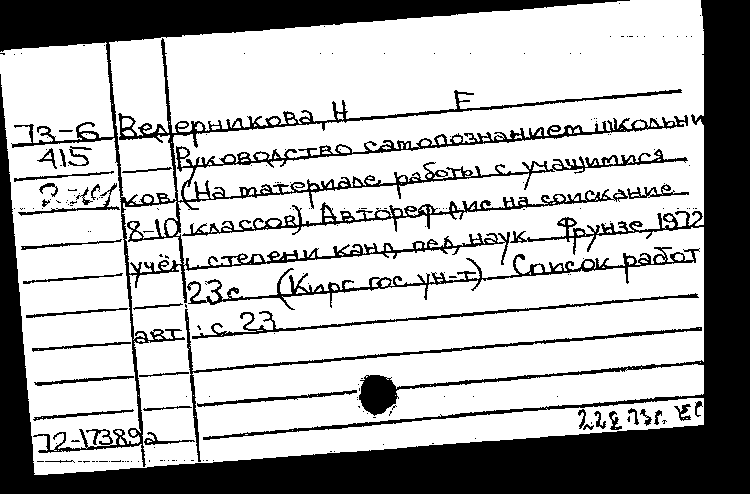 73-6 Ведерникова, Н Е
415 Руководство самопознанием школьни
ков (На материале работы с учащимися
8-10 классов). Автореф дис на соискание
учён. степени канд пед, наук. Фрунзе, 1972
23с (Кирг гос ун-т) Список работ
авт : с. 23
72-17389а